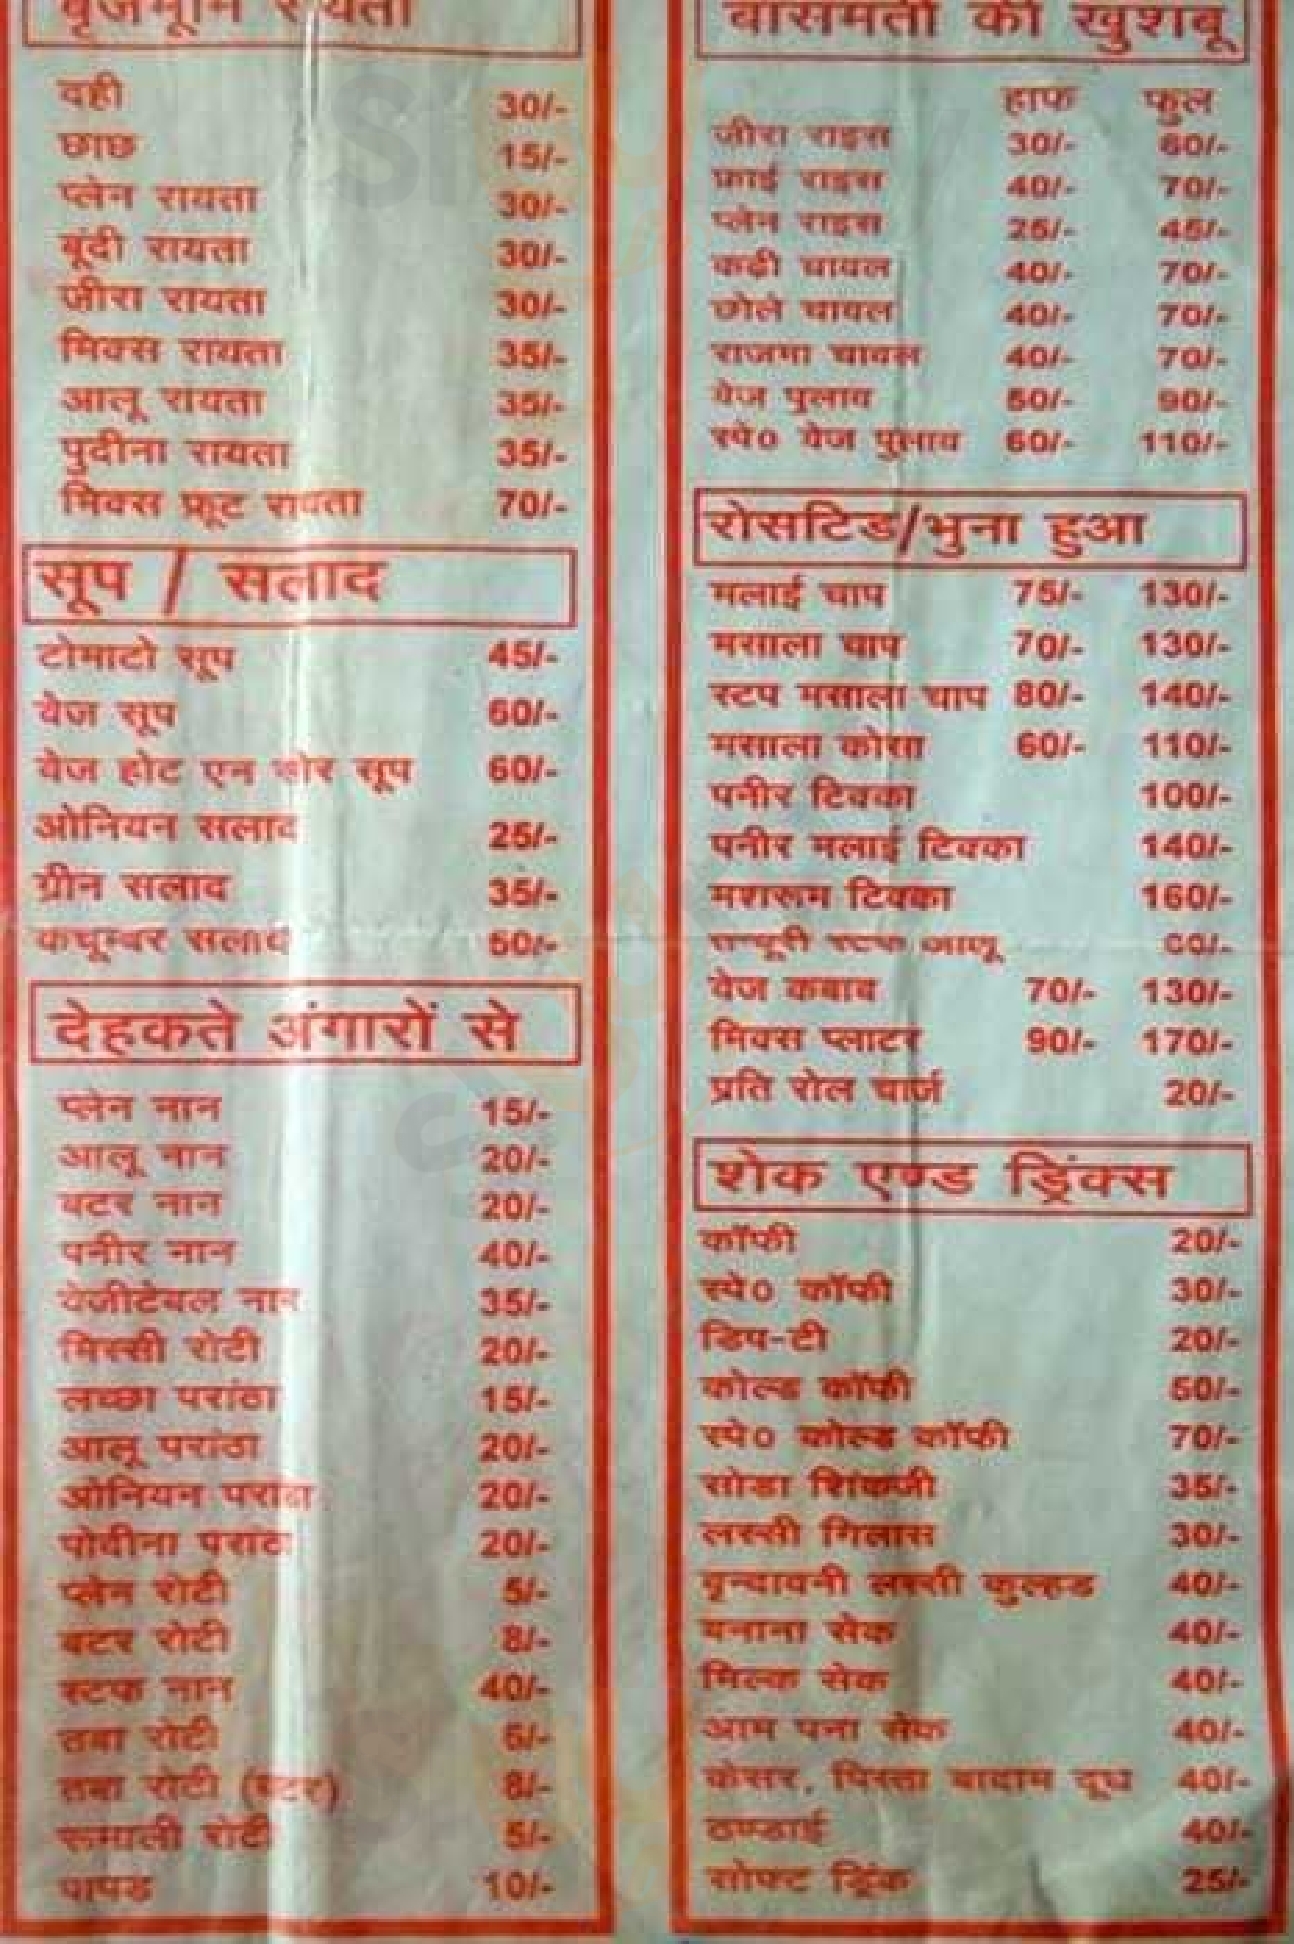 बृजभूमि रायता
दही 30/-
छाछ 15/-
प्लेन रायता 30/-
बूंदी रायता 30/-
जीरा रायता 30/-
मिक्स रायता 35/-
आलू रायता 35/-
पुदीना रायता 35/-
मिक्स फ्रूट रायता 70/-
सूप / सलाद
टोमाटो सूप 45/-
वेज सूप 60/-
वेज होट एन सूप 60/-
ओनियन सलाद 25/-
ग्रीन सलाद 35/-
कचूम्बर सलाद 50/-
देहकते अंगारों से
प्लेन नान 15/-
आलू नान 20/-
बटर नान 20/-
पनीर नान 40/-
वेजीटेबल नान 35/-
मिस्सी रोटी 20/-
लच्छा परांठा 15/-
आलू परांठा 20/-
ओनियन परांठा 20/-
पोदीना परांठा 20/-
प्लेन रोटी 5/-
बटर रोटी 8/-
स्टफ नान 40/-
तवा रोटी 5/-
तवा रोटी (बटर) 8/-
रूमाली रोटी 5/-
पापड 10/-
बासमती की खुशबू
हाफ फुल
जीरा राइस 30/- 60/-
फ्राई राइस 40/- 70/-
प्लेन राइस 25/- 45/-
कढ़ी चावल 40/- 70/-
छोले चावल 40/- 70/-
राजमा चावल 40/- 70/-
वेज पुलाव 50/- 90/-
स्पे0 वेज पुलाव 60/- 110/-
रोसटिड/भुना हुआ
मलाई चाप 75/- 130/-
मसाला चाप 70/- 130/-
स्टप मसाला चाप 80/- 140/-
मसाला कोसा 60/- 110/-
पनीर टिक्का 100/-
पनीर मलाई टिक्का 140/-
मशरूम टिक्का 160/-
तन्दूरी स्टफ आलू
वेज कबाब 70/- 130/-
मिक्स प्लाटर 90/- 170/-
प्रति रोल चार्ज 20/-
शेक एण्ड ड्रिंक्स
कॉफी 20/-
स्पे0 कॉफी 30/-
डिप-टी 20/-
कोल्ड कॉफी 50/-
स्पे0 कोल्ड कॉफी 70/-
सोडा शिंकजी 35/-
लस्सी गिलास 30/-
वृन्दावनी लस्सी कुल्हड 40/-
बनाना सेक 40/-
मिल्क सेक 40/-
आम पना सेक 40/-
केसर, पिस्ता बादाम दूध 40/-
ठण्डाई 40/-
सोफ्ट ड्रिंक 25/-